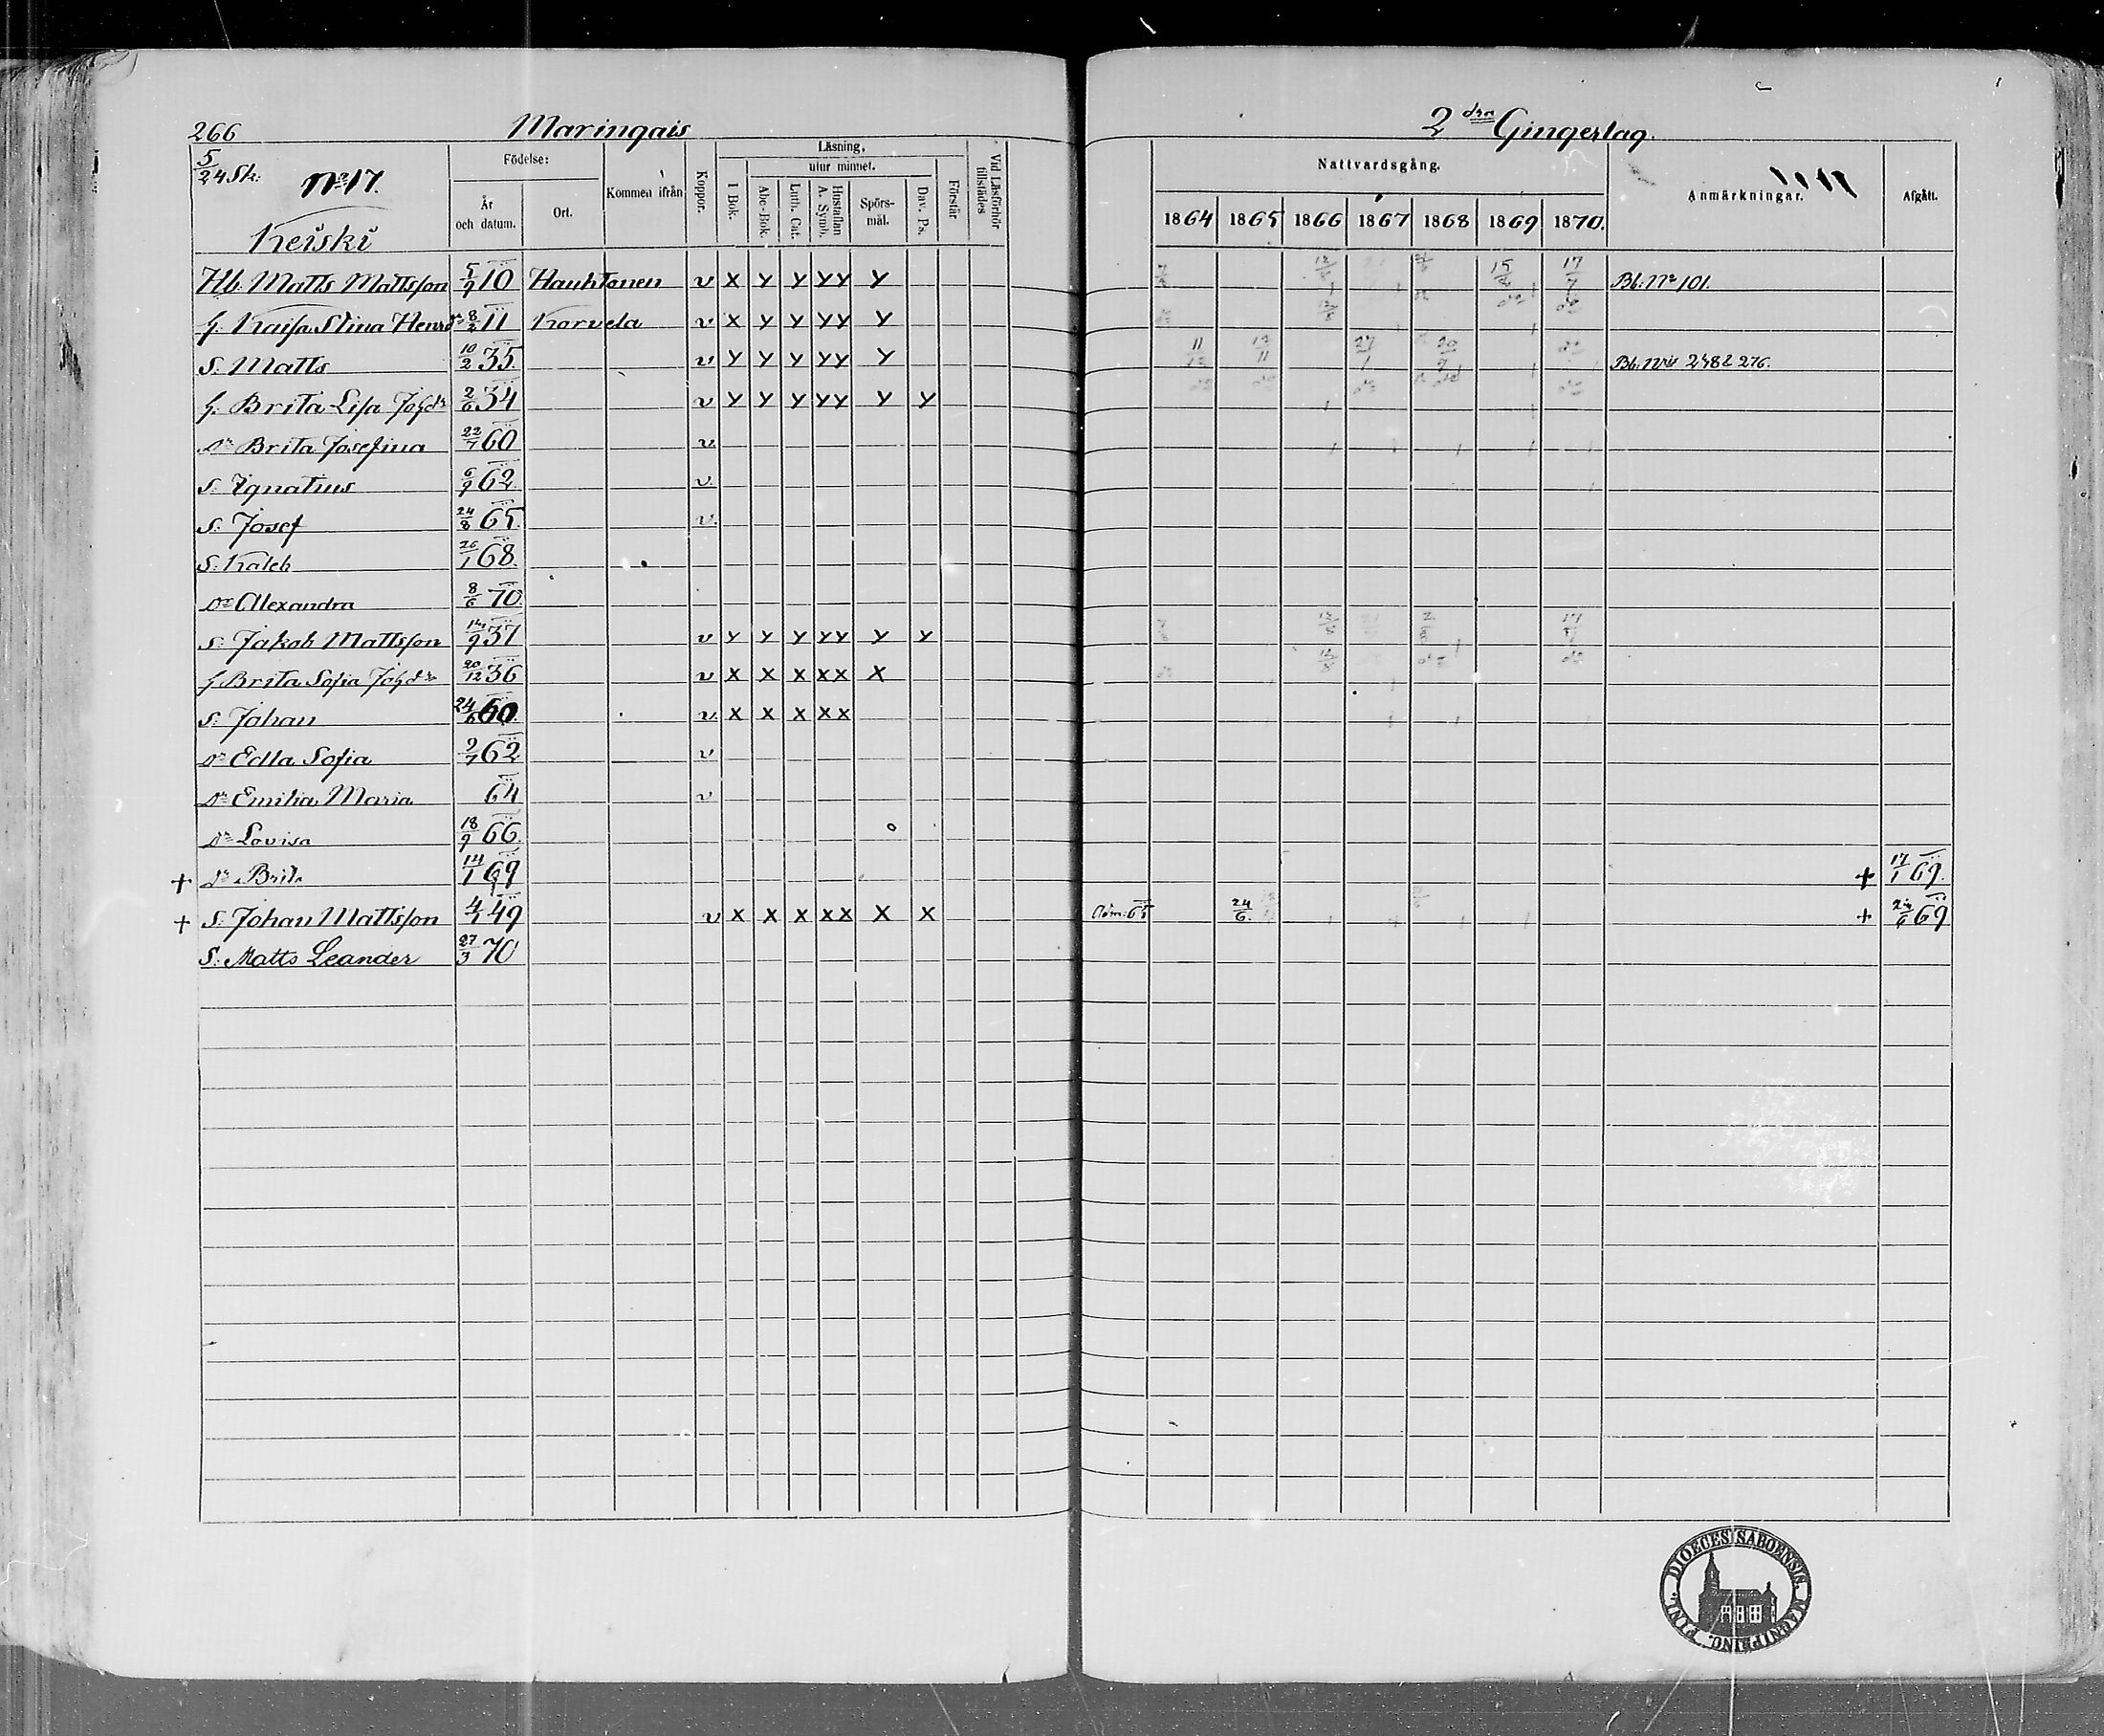 266 Maringais 2dra Gingerlag.
5/24 Sk: No 17. Keiski
Födelse: År och datum. Ort. Kommen ifrån Koppor. Läsning, utur minnet. I Bok. Abc-Bok. Luth. Cat. Hustaflan A. Symb. Spörs-mål. Dav. Ps. Förstår Vid Läsförhör tillstädes
Nattvardsgång. Anmärkningar. Afgått.
1864 1865 1866 1867 1868 1869 1870.
Hb. Matts Mattsson 5/9 10 Hauhtonen v x y y yy y 15 17 Bb: No 101.
h. Kaisa Stina Henrdr 8/2 11 Korvela v x y y yy y
S. Matts 10/2 35. v y y y yy y 11/12 12/11 27/1 20 Bb: Nris 248 & 276.
h. Brita Lisa Johdr 2/6 34 v y y y yy y y
Dr Brita Josefina 22/7 60 v
S. Ignatius 6/9 62 v
S. Josef 24/8 65. v
S. Kaleb 26/1 68.
Dr Alexandra 8/6 70
S. Jakob Mattsson 14/9 37 v y y y yy y y 17
h Brita Sofia Johdr 20/12 36 v x x x xx x
S. Johan 24/6 60. v x x x xx
Dr Edla Sofia 2/7 62 v
Dr Emilia Maria 64 v
Dr Lovisa 18/9 66.
+ dr Brita 14/1 69 + 17/1 69.
+ S. Johan Mattsson 4/1 49 v x x x xx x x Adm: 65 24/6. + 24/6 69
S. Matts Leander 27/3 70
DIOECES SABOENSIS. MAGNI PRINC. FINL.